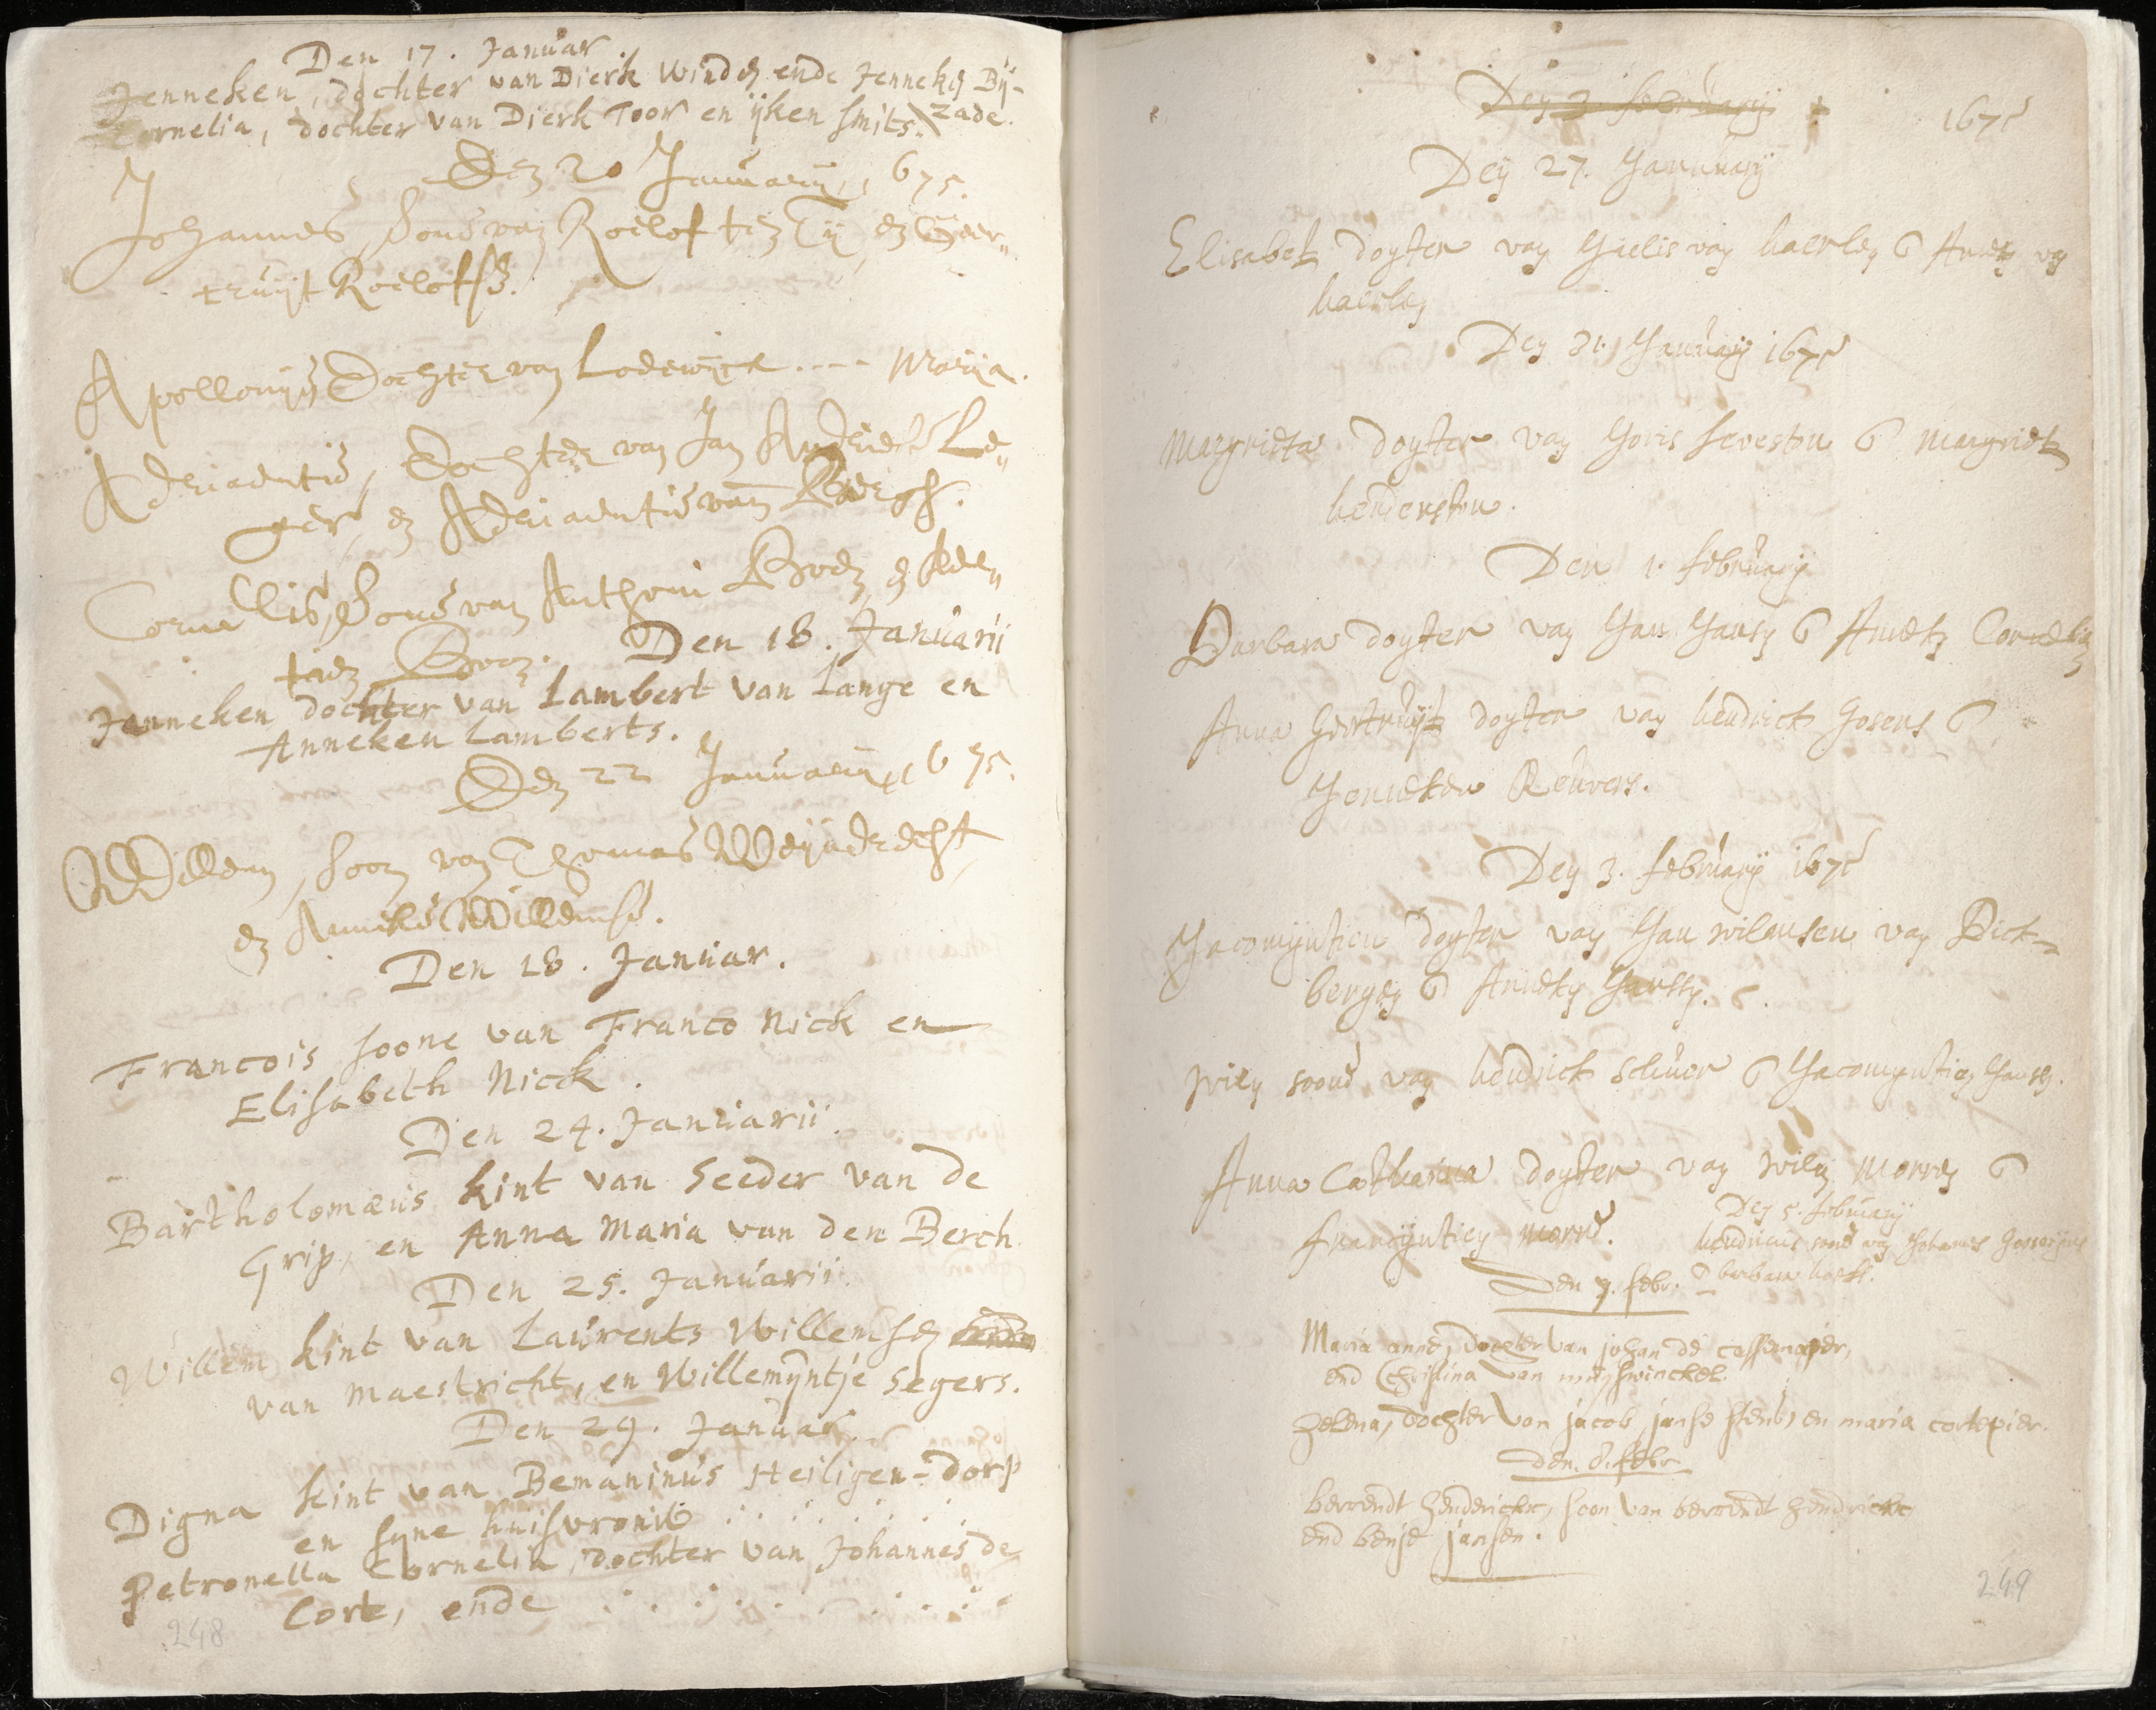 Den 17. Januar
Jenneken, dochter van Dierk Winden ende Jenneken Bij-
Cornelia, dochter van Dierk Toor en ijken smits. \ zade.
Den 20 Januarij 1675.
Johannes, Sone van Roelof ten Tij, en Geer„
truijt Roelofse.
Apollonija Dochter van Lodewijck .... Marija.
Adriaentie, Dochter van Jan Andries Le„
ger, en Adriaentie van Bergh.
Cornelis, Sone van Anthoni Boen, en Ade„
Boen. Den 18. Januarii
Janneken dochter van Lambert van Lange en
Anneken Lamberts.
Den 22 Januarij 1675.
Willem, soon van Thomas
en Anneke Willemse.
Den 18. Januar.
Francois soone van Franco Nick en
Elisabeth Nick.
Den 24. Januarii.
Bartholomæus kint van Seeder van de
Grip, en Anna Maria van den Berch
Den 25. Januarii.
Willem kint van Laurents Willemsen
van Maestricht, en Willemyntje Segers.
Den 29. Januar.
Digna kint van Bemaninus Heiligen-dorp
en syne huisvrouw . . . . . . .
Petronella Cornelia, dochter van Johannes de
Corte, ende . . . . . . . . . .
248
Den 3 februarij
1675
Den 27. Januarij
Elisabet dogter van Gielis van haerlen en Anneken van
haerlen
Den 31. Januarij 1675
Margrieta dogter van Joris en Margriet
henderston.
Den 1. februarij
Barbara dogter van Jan Jansen en Anneken Cornelis
Anna Geertruijt dogter van hendrick Gosens en
Jenneken Reuvers.
Den 3. februarij 1675
Jacomyntien dogter van Jan wilemsen van Dick-
bergen en Anneken
wilem soone van hendrick en Jacomyntien Jansen.
Anna Catharina dogter van wilem morre en
francyntien morre.
Den 5. februarij
hendricus soone van Johannes
en barbara
Den 7. febr.
Maria anne, dochter van johan de cassemajer,
end Christina van
helena, dochter van jacob janse en maria cortepier.
den. 8. febr
berrendt henderickx, soon van berrendt hendrickx
end jansen.
249